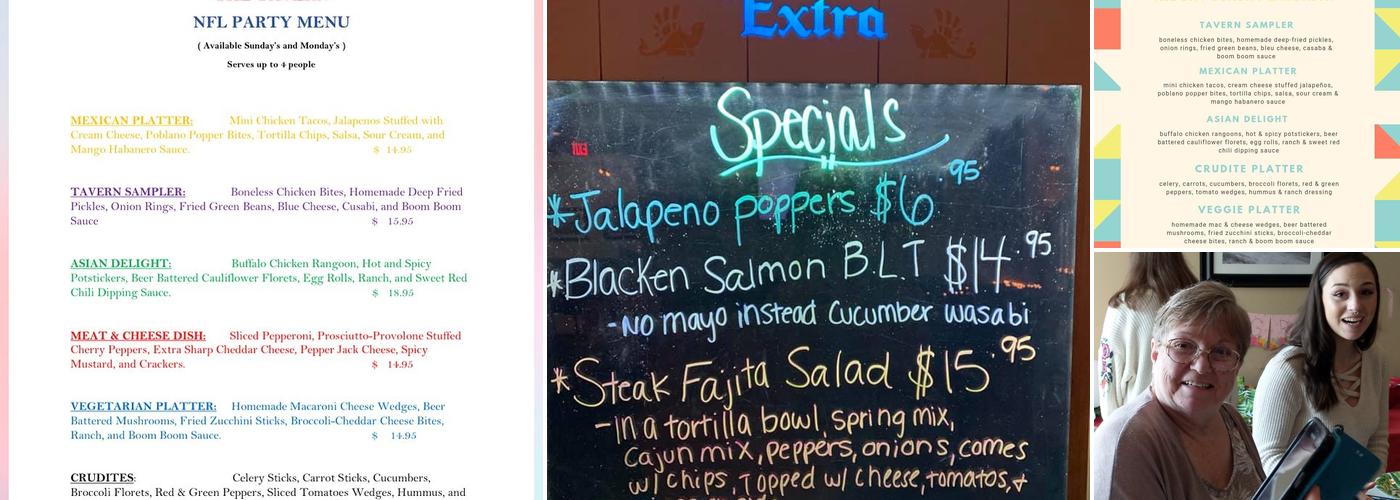 NFL PARTY MENU
( Available Sunday's and Monday's )
Serves up to 4 people
MEXICAN PLATTER: Mini Chicken Tacos, Jalapenos Stuffed with
Cream Cheese, Poblano Popper Bites, Tortilla Chips, Salsa, Sour Cream, and
Mango Habanero Sauce. $ 14.95
TAVERN SAMPLER: Boneless Chicken Bites, Homemade Deep Fried
Pickles, Onion Rings, Fried Green Beans, Blue Cheese, Cusabi, and Boom Boom
Sauce $ 15.95
ASIAN DELIGHT: Buffalo Chicken Rangoon, Hot and Spicy
Potstickers, Beer Battered Cauliflower Florets, Egg Rolls, Ranch, and Sweet Red
Chili Dipping Sauce. $ 18.95
MEAT & CHEESE DISH: Sliced Pepperoni, Prosciutto-Provolone Stuffed
Cherry Peppers, Extra Sharp Cheddar Cheese, Pepper Jack Cheese, Spicy
Mustard, and Crackers. $ 14.95
VEGETARIAN PLATTER: Homemade Macaroni Cheese Wedges, Beer
Battered Mushrooms, Fried Zucchini Sticks, Broccoli-Cheddar Cheese Bites,
Ranch, and Boom Boom Sauce. $ 14.95
CRUDITES: Celery Sticks, Carrot Sticks, Cucumbers,
Broccoli Florets, Red & Green Peppers, Sliced Tomatoes Wedges, Hummus, and
Extra
Specials
*Jalapeno poppers $6.95
*Blacken Salmon B.L.T $14.95
-No mayo instead cucumber wasabi
*Steak Fajita Salad $15.95
-In a tortilla bowl, spring mix,
Cajun mix, peppers, onions, comes
w/ chips, Topped w/ cheese, tomatos, &
TAVERN SAMPLER
boneless chicken bites, homemade deep-fried pickles,
onion rings, fried green beans, bleu cheese, casaba &
boom boom sauce
MEXICAN PLATTER
mini chicken tacos, cream cheese stuffed jalapeños,
poblano popper bites, tortilla chips, salsa, sour cream &
mango habanero sauce
ASIAN DELIGHT
buffalo chicken rangoons, hot & spicy potstickers, beer
battered cauliflower florets, egg rolls, ranch & sweet red
chili dipping sauce
CRUDITE PLATTER
celery, carrots, cucumbers, broccoli florets, red & green
peppers, tomato wedges, hummus & ranch dressing
VEGGIE PLATTER
homemade mac & cheese wedges, beer battered
mushrooms, fried zucchini sticks, broccoli-cheddar
cheese bites, ranch & boom boom sauce